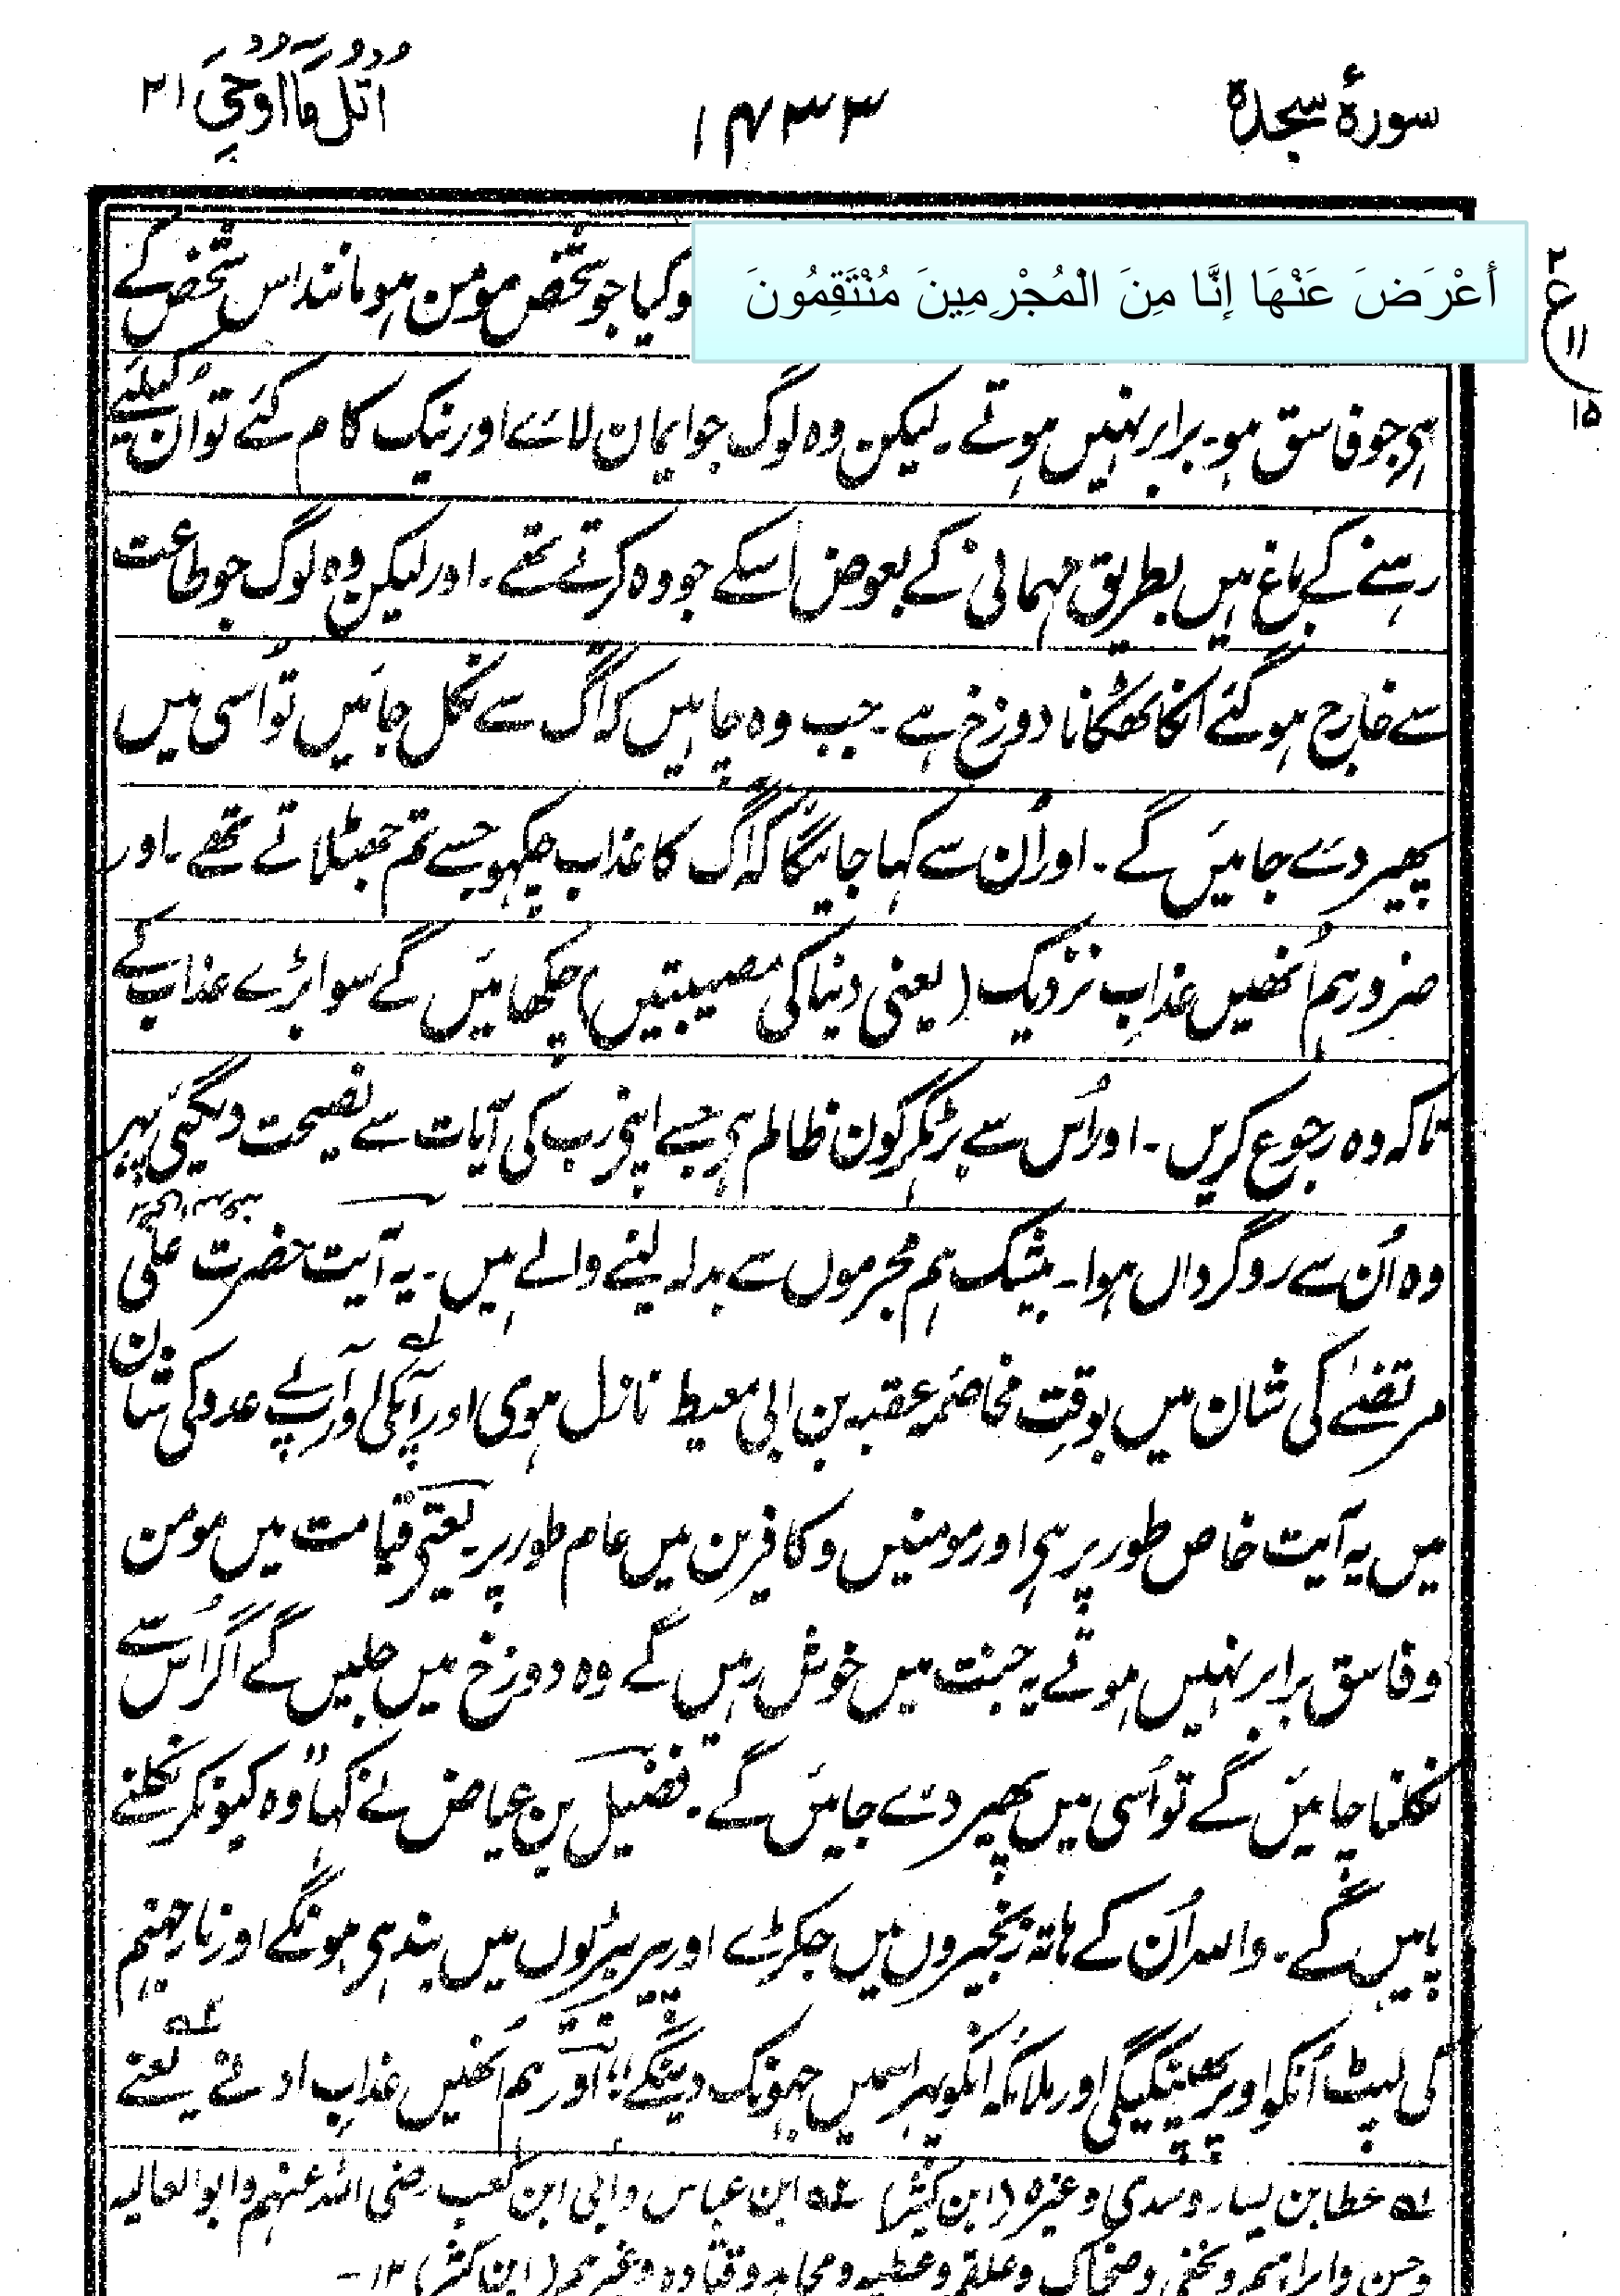 سورۂ سجدہ ۱۴۳۳ اُتْلُ مَا اُوْحِیَ ۲۱
أَعْرَضَ عَنْهَا إِنَّا مِنَ الْمُجْرِمِينَ مُنْتَقِمُونَ وکیا جو شخص مومن ہو مانند اس شخص کے
۲ ع ۱۱ ۱۵
ہی جو فاسق ہو۔ برابر نہیں ہوتے۔ لیکن وہ لوگ جو ایمان لائے اور نیک کام کئے تو اُن کیلئے
رہنے کے باغ ہیں بطریق مہمانی کے بعوض اسکے جو وہ کرتے تھے۔ اور لیکن وہ لوگ جو طاعت
سے خارج ہو گئے انکا ٹھکانا دوزخ ہے۔ جب وہ چاہیں کہ آگ سے نکل جائیں تو اُسی میں
پھیر دئے جائیں گے۔ اور اُن سے کہا جائیگا کہ آگ کا عذاب چکہو جسے تم جھٹلاتے تھے۔ اور
ضرور ہم اُنھیں عذابِ نزدیک (یعنی دنیا کی مصیبتیں) چکھائیں گے سوا بڑے عذاب کے
تاکہ وہ رجوع کریں۔ اور اُس سے بڑہکر کون ظالم ہی جسے اپنی رب کی آیات سے نصیحت دیگئی پہر
وہ اُن سے روگرداں ہوا۔ بیشک ہم مجرموں سے بدلہ لینے والے ہیں۔ یہ آیت حضرت علی
مرتضےٰ کی شان میں بوقتِ مخاصمہ عقبہ بن ابی معیط نازل ہوی اور آپکی اور آپ کے عدو کی شان
میں یہ آیت خاص طور پر ہی اور مومنین و کافرین میں عام طور پر۔ یعنی قیامت میں مومن
و فاسق برابر نہیں ہوتے یہ جنت میں خوش رہیں گے وہ دوزخ میں جلیں گے اگر اُس سے
نکلنا چاہیں گے تو اُسی میں پھیر دئے جائیں گے۔ فضیل بن عیاض نے کہا "وہ کیونکر نکلنے
پائیں گے۔ واللہ اُن کے ہاتہ زنجیروں میں جکڑے اور پیر بیڑیوں میں بندہی ہونگے اور نار جہنم
کی لپٹ اُنکو اوپر پھینکیگی اور ملائکہ انکو پہر اسمیں جہونک دینگے" اور ہم اُنھیں عذاب ادنےٰ یعنے
۱ عطا بن یسار و سدی وغیرہ (ابن کثیر) ۲ ابن عباس و ابی ابن کعب رضی اللہ عنہم و ابو العالیہ
و حسن و ابراہیم و نخعی و ضحاک و علقمہ و عطیہ و مجاہد و قتادہ وغیرہم (ابن کثیر) ۱۲۔